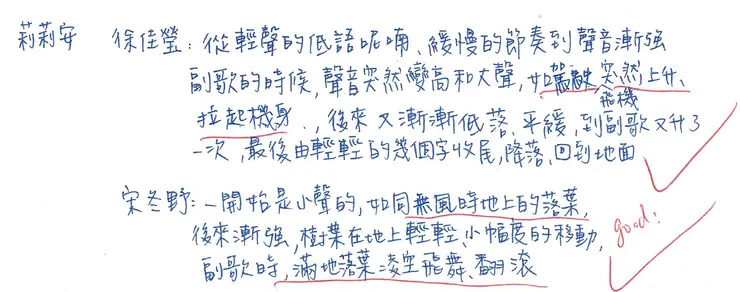 莉莉安 徐佳瑩:從輕聲的低語呢喃、緩慢的節奏到聲音漸強
副歌的時候,聲音突然變高和大聲,如駕駛飛機突然上升、
拉起機身.,後來又漸漸低落、平緩,到副歌又升了
一次,最後由輕輕的幾個字收尾,降落、回到地面
宋冬野:一開始是小聲的,如同無風時地上的落葉,
後來漸強,樹葉在地上輕輕、小幅度的移動,
good!
副歌時,滿地落葉凌空飛舞、翻滾